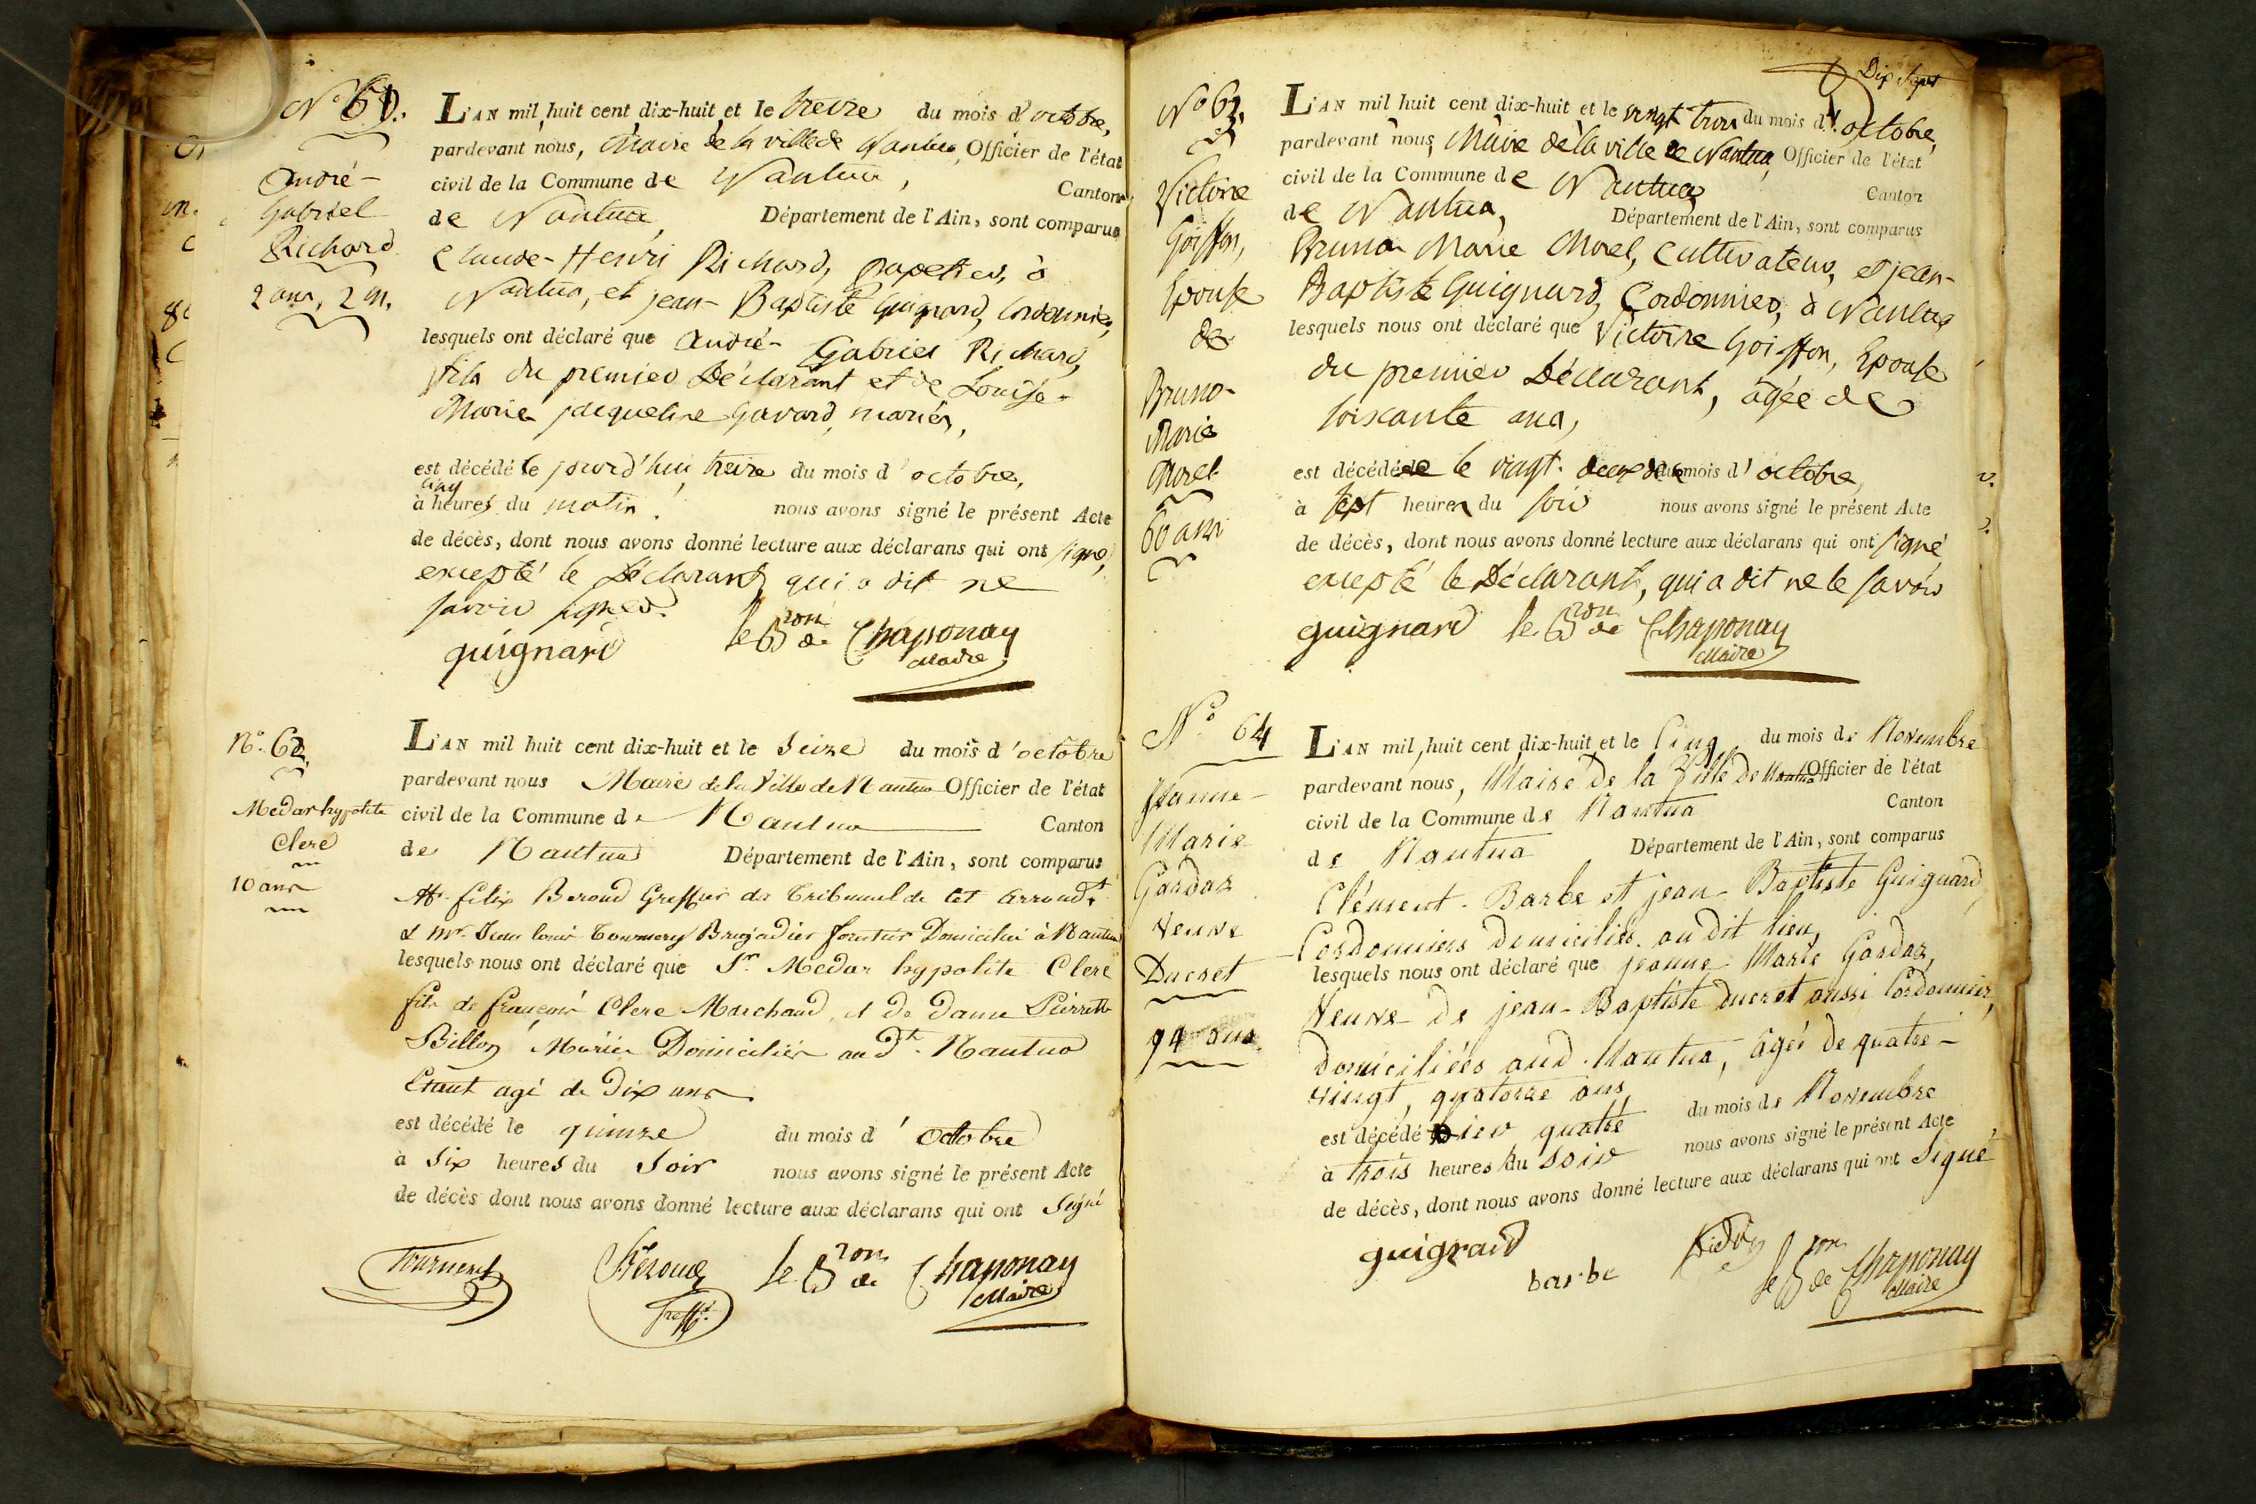 N.° 61.
André-
Gabriel
Richard
2 ans, 2 m.
L'AN mil huit cent dix-huit et le treize du mois d'octobre,
pardevant nous, Maire de la ville de Nantua, Officier de l'état
civil de la Commune de Nantua, Canton
de Nantua, Département de l'Ain, sont comparus
Claude-Henri Richard, papetier, à
Nantua, et jean-Baptiste Guignard, Cordonnier,
lesquels ont déclaré que André-Gabriel Richard,
fils du premier Déclarant et de Louise-
Marie jacqueline Gavard, mariés,
est décédé le jourd'hui treize du mois d'octobre,
cinq
à heures du matin. nous avons signé le présent Acte
de décès, dont nous avons donné lecture aux déclarans qui ont signé,
excepté le Déclarant, qui a dit ne
savoir signer.
guignard le Bron de Chaponay
Maire
N.° 62.
Medar hypolite
Clere
10 ans
L'AN mil huit cent dix-huit et le Seize du mois d'octobre
pardevant nous Maire de la Ville de Nantua Officier de l'état
civil de la Commune de Nantua Canton
de Nantua Département de l'Ain, sont comparus
Mr. felix Beroud Greffier du Tribunal de cet arrondt.
& Mr. Jean louis Tournery Brigadier forestier Domicilié à Nantua
lesquels nous ont déclaré que Sr. Medar hypolite Clere
fils de françois Clere Marchand, et de dame Pierrette
Billon Mariés Domiciliés au dt. Nantua
Etant agé de Dix ans
est décédé le quinze du mois d'octobre
à Six heures du Soir nous avons signé le présent Acte
de décès dont nous avons donné lecture aux déclarans qui ont Signé
Tournery Béroud le Bron de Chaponay
Greff. Maire
Dix Sept
N° 63.
Victoire
Goiffon,
Epouse
de
Bruno-
Marie
Morel
60 ans
L'AN mil huit cent dix-huit et le vingt trois du mois d'octobre,
pardevant nous, Maire de la ville de Nantua, Officier de l'état
civil de la Commune de Nantua Canton
de Nantua, Département de l'Ain, sont comparus
Bruno Marie Morel, Cultivateur, et jean-
Baptiste Guignard, Cordonnier, à Nantua
lesquels nous ont déclaré que Victoire Goiffon, Epouse
du premier Déclarant, âgée de
soixante ans,
est décédée le vingt-deux du mois d'octobre,
à sept heures du soir nous avons signé le présent Acte
de décès, dont nous avons donné lecture aux déclarans qui ont signé
excepté le Déclarant, qui a dit ne le savoir
guignard le Bron de Chaponay
Maire
N° 64
Jeanne-
Marie
Gardaz
Veuve
Ducret
94 ans
L'AN mil huit cent dix-huit et le Cinq du mois de Novembre
pardevant nous, Maire de la Ville de Nantua Officier de l'état
civil de la Commune de Nantua Canton
de Nantua Département de l'Ain, sont comparus
Clément Barbe et jean-Baptiste Guignard,
Cordonniers domiciliés au dit lieu,
lesquels nous ont déclaré que jeanne Marie Gardaz,
Veuve de jean-Baptiste ducret aussi Cordonnier,
domiciliée aud. Nantua, âgée de quatre-
vingt, quatorze ans
est décédé hier quatre du mois de Novembre
à trois heures du soir nous avons signé le présent Acte
de décès, dont nous avons donné lecture aux déclarans qui ont Signé
guignard
barbe le Bron de Chaponay
Maire